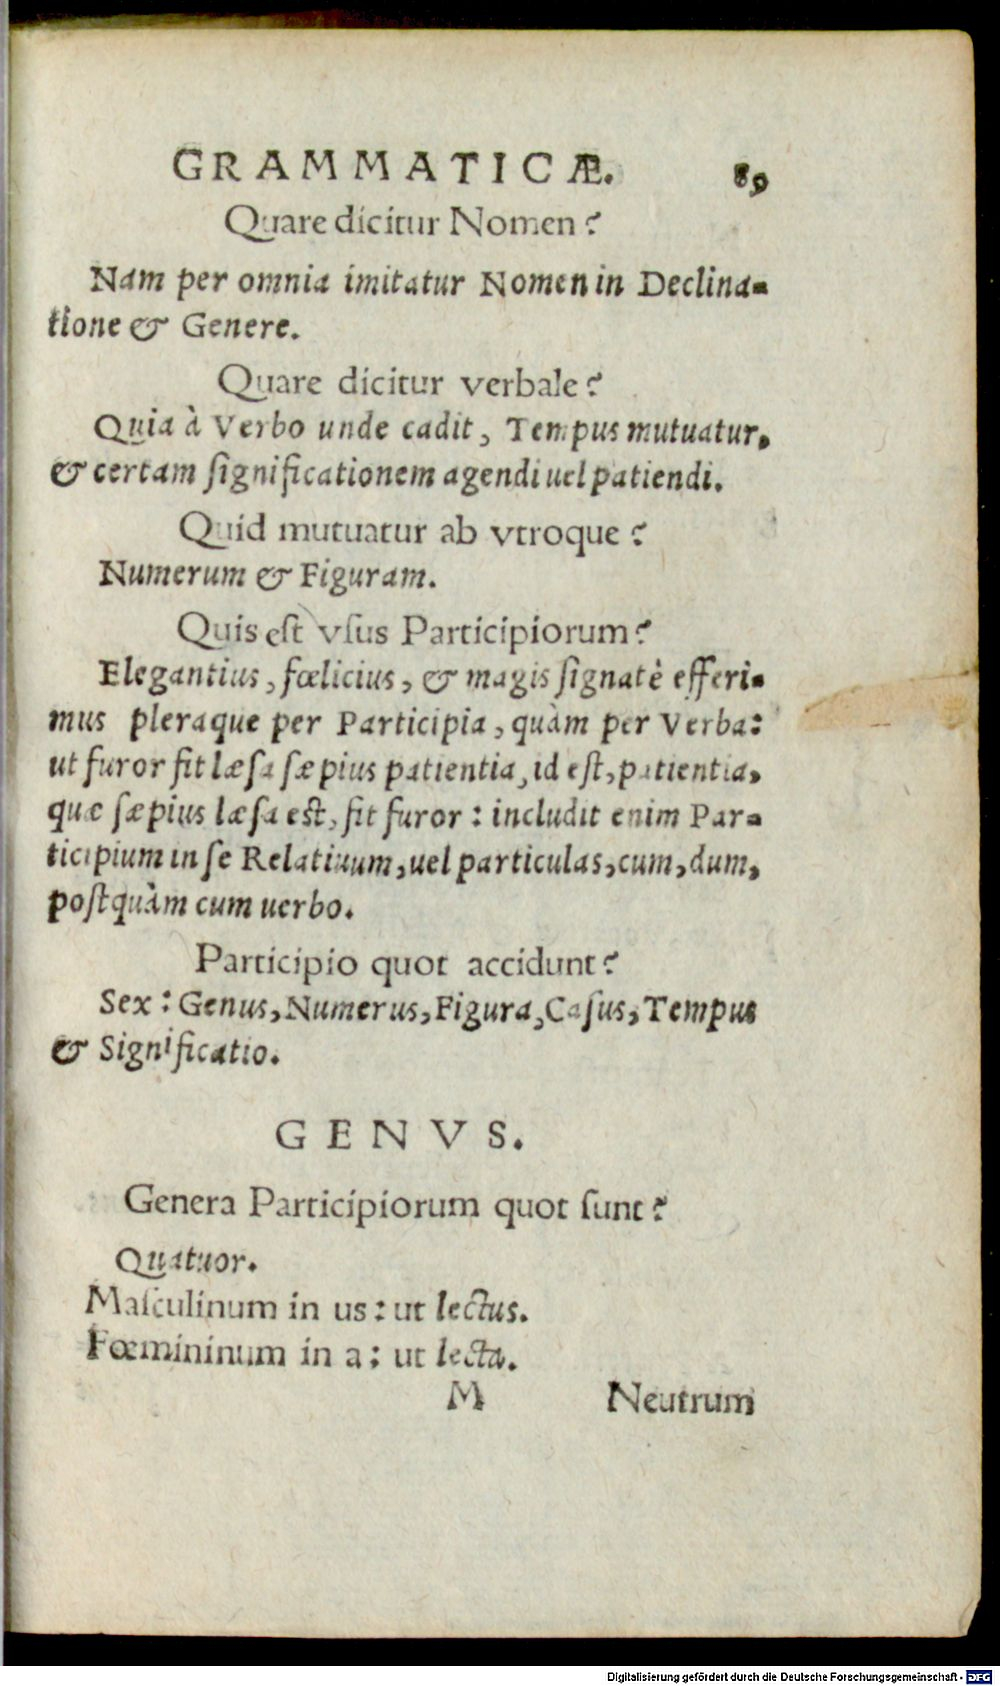 GRAMMATICÆ. 89
Quare dicitur Nomen?
Nam per omnia imitatur Nomen in Declina-
tione & Genere.
Quare dicitur verbale?
Quia à Verbo unde cadit, Tempus mutuatur,
& certam ſignificationem agendi uel patiendi.
Quid mutuatur ab vtroque?
Numerum & Figuram.
Quis eſt vſus Participiorum?
Elegantius, fœlicius, & magis ſignatè efferi-
mus pleraque per Participia, quàm per Verba:
ut furor fit læſa ſæpius patientia, id eſt, patientia,
quæ ſæpius læſa eſt, fit furor: includit enim Par-
ticipium in ſe Relatiuum, uel particulas, cum, dum,
poſtquàm cum uerbo.
Participio quot accidunt?
Sex: Genus, Numerus, Figura, Caſus, Tempus
& Significatio.
GENVS.
Genera Participiorum quot ſunt?
Quatuor.
Maſculinum in us: ut lectus.
Fœmininum in a: ut lecta.
M Neutrum
Digitalisierung gefördert durch die Deutsche Forschungsgemeinschaft - DFG